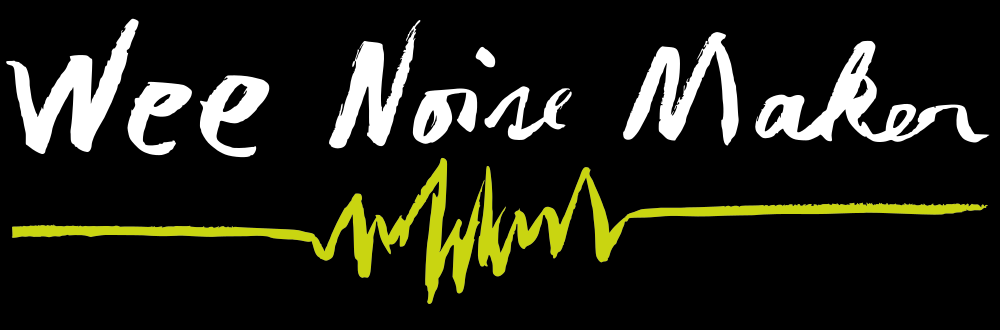 Wee Noise Maker